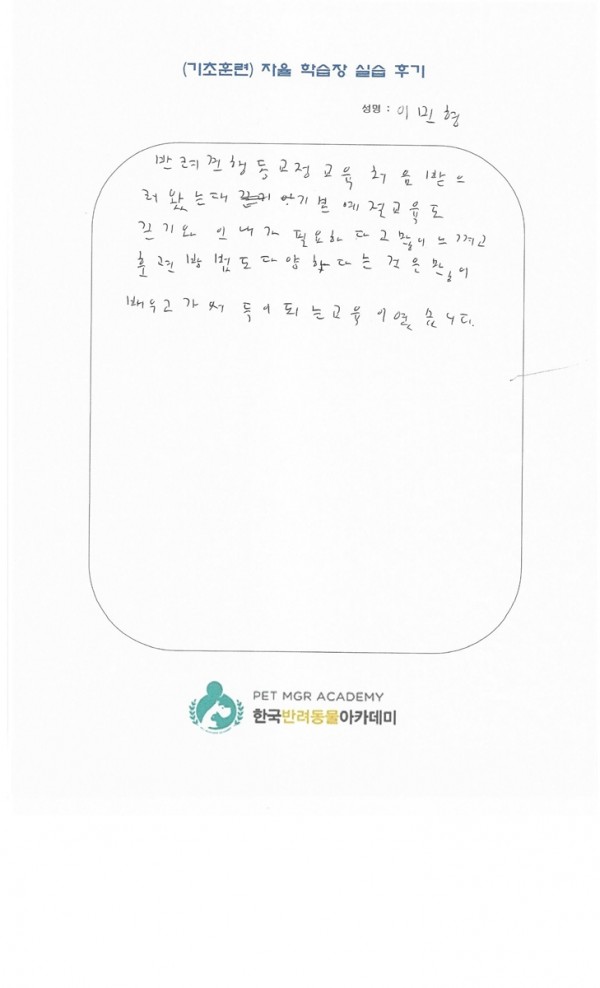 (기초훈련) 자율 학습장 실습 후기
성명 : 이민형
반려견행동교정교육 처음받으
러 왔는대 기본 예절교육도
끈기와 인내가 필요하다고 많이 느끼고
훈련방법도 다양하다는 것은 많이
배우고가써 득이되는교육이였습니다.
PET MGR ACADEMY
한국반려동물아카데미